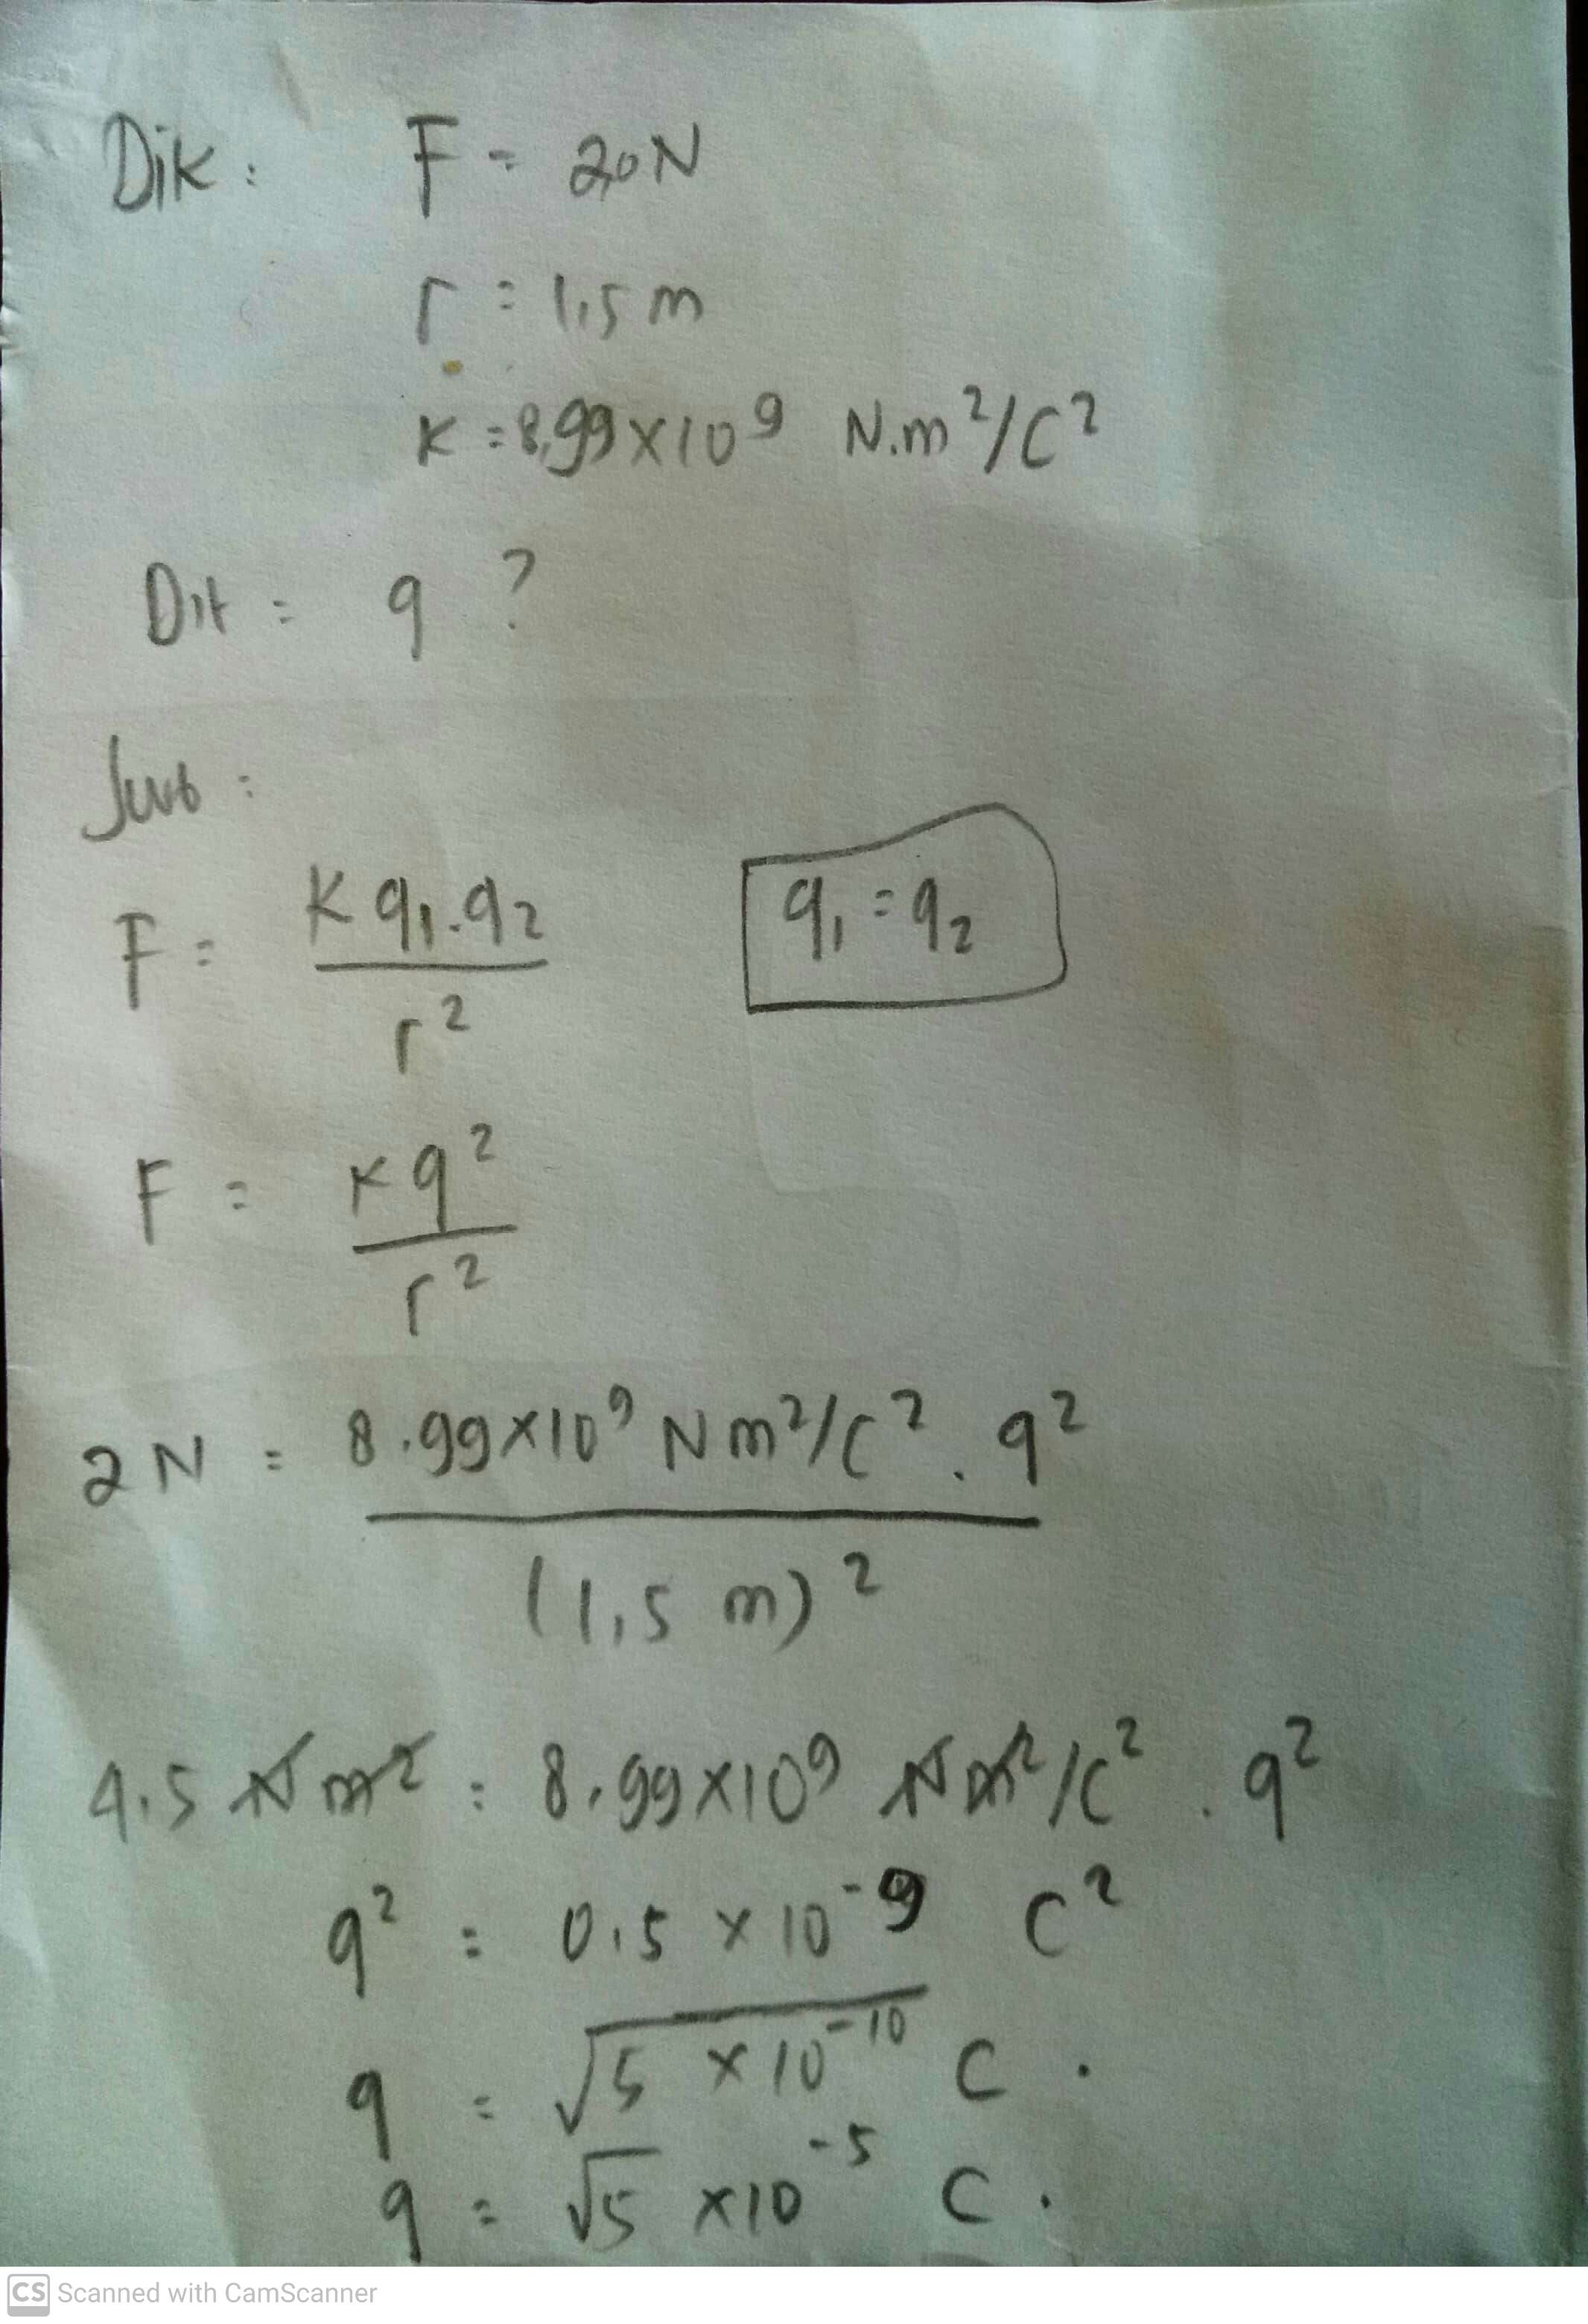 Dik : F = 2,0 N
r = 1,5 m
K = 8,99 x 10⁹ N.m²/C²
Dit = q ?
Jwb :
F = K q₁.q₂ / r²
q₁ = q₂
F = K q² / r²
2 N = 8.99 x 10⁹ N m²/C² . q² / (1,5 m)²
4.5 N m² = 8.99 x 10⁹ N m²/C² . q²
q² = 0.5 x 10⁻⁹ C²
q = √5 x 10⁻¹⁰ C .
q = √5 x 10⁻⁵ C .
CS Scanned with CamScanner